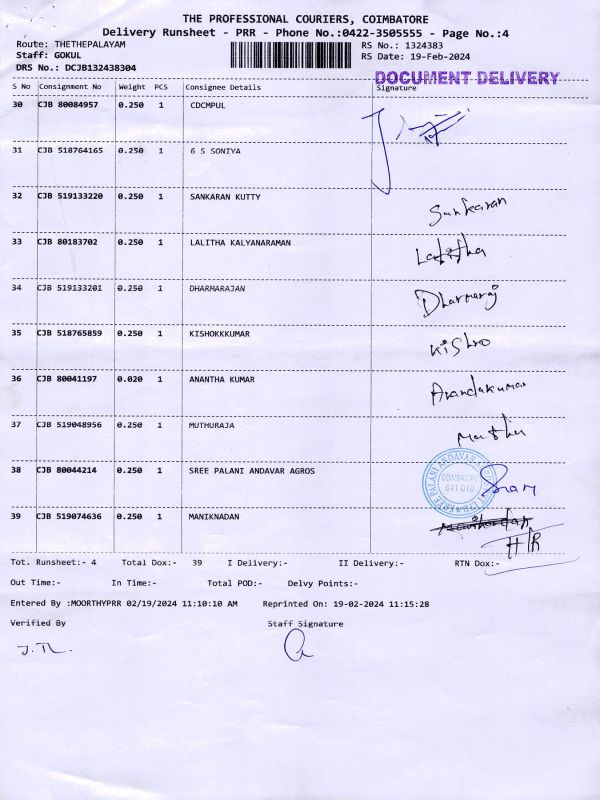 THE PROFESSIONAL COURIERS, COIMBATORE
Delivery Runsheet - PRR - Phone No.:0422-3505555 - Page No.:4
Route: THETHEPALAYAM RS No.: 1324383
Staff: GOKUL RS Date: 19-Feb-2024
DRS No.: DCJB132438304
DOCUMENT DELIVERY
S No Consignment No Weight PCS Consignee Details Signature
30 CJB 80084957 0.250 1 CDCMPUL
31 CJB 518764165 0.250 1 6 S SONIYA
32 CJB 519133220 0.250 1 SANKARAN KUTTY Sankaran
33 CJB 80183702 0.250 1 LALITHA KALYANARAMAN Lalitha
34 CJB 519133201 0.250 1 DHARMARAJAN Dharmaraj
35 CJB 518765859 0.250 1 KISHOKKKUMAR Kishro
36 CJB 80041197 0.020 1 ANANTHA KUMAR Anandakumar
37 CJB 519048956 0.250 1 MUTHURAJA Muthu
38 CJB 80044214 0.250 1 SREE PALANI ANDAVAR AGROS
COIMBATORE
641 010
39 CJB 519074636 0.250 1 MANIKNADAN
H/R
Tot. Runsheet:- 4 Total Dox:- 39 I Delivery:- II Delivery:- RTN Dox:-
Out Time:- In Time:- Total POD:- Delvy Points:-
Entered By :MOORTHYPRR 02/19/2024 11:10:10 AM Reprinted On: 19-02-2024 11:15:28
Verified By Staff Signature